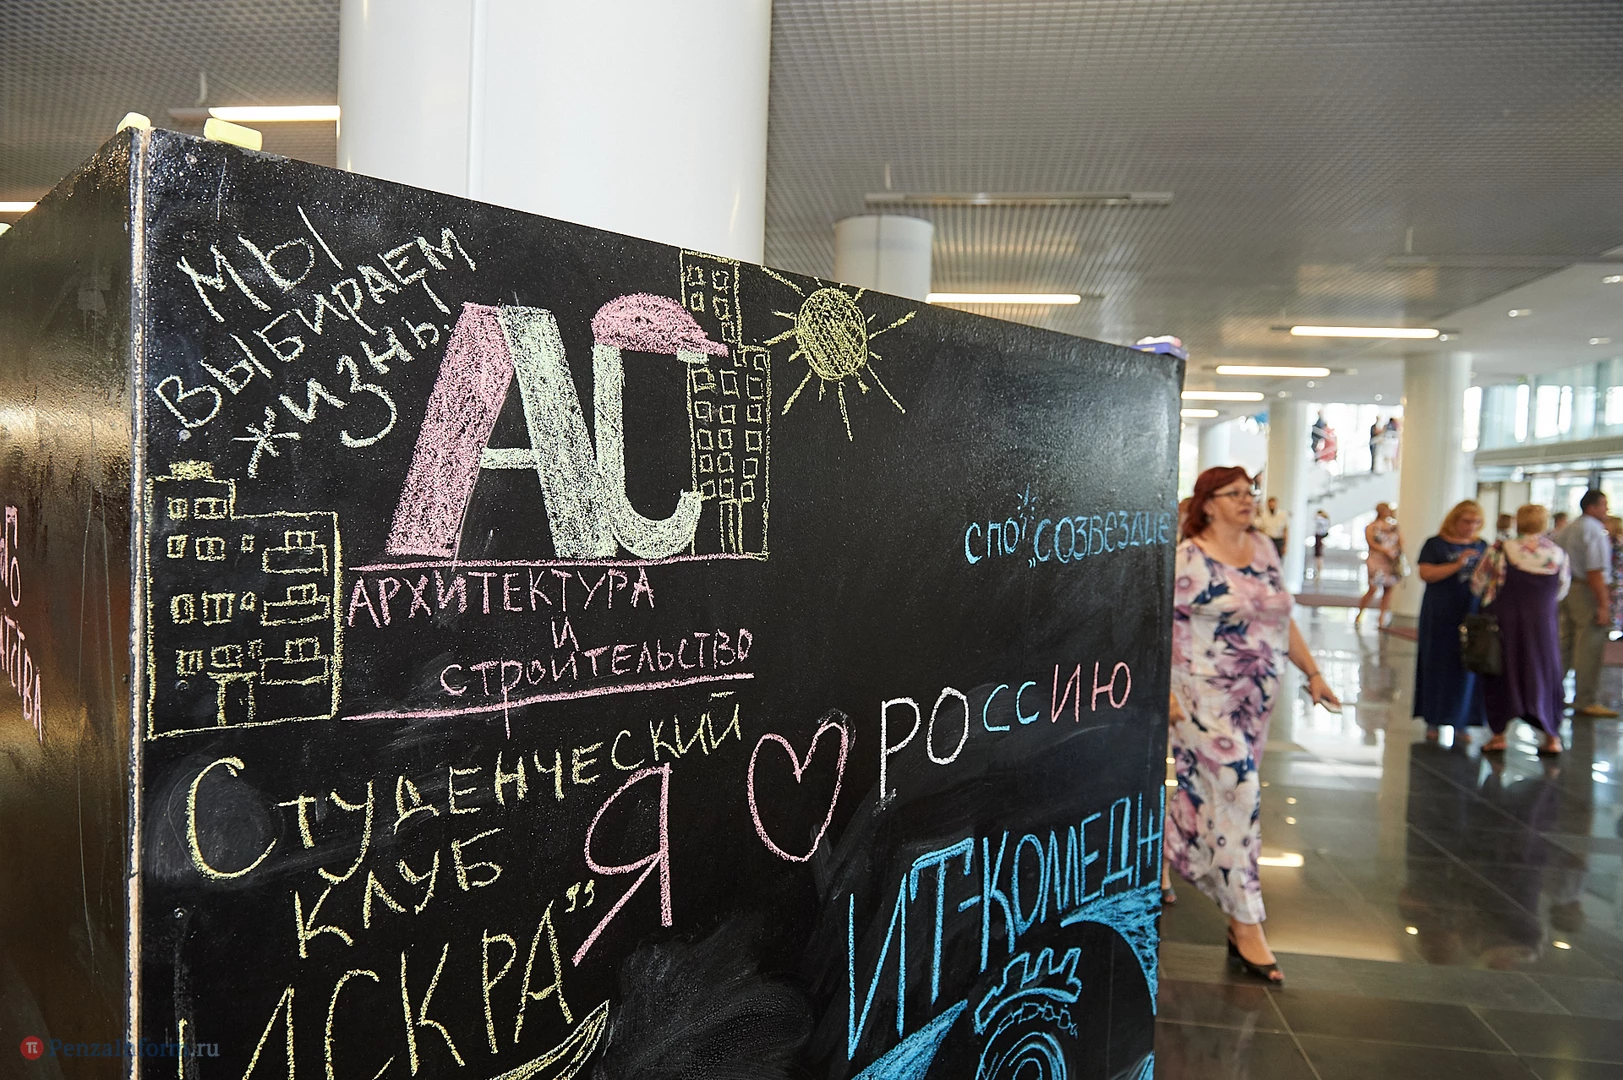 МЫ
ВЫБИРАЕМ
ЖИЗНЬ!
АС
АРХИТЕКТУРА
И
СТРОИТЕЛЬСТВО
СПО „СОЗВЕЗДИЕ
Я РОССИЮ
СТУДЕНЧЕСКИЙ
КЛУБ
ИСКРА"
ИТ-КОМЕДН
PenzaInform.ru